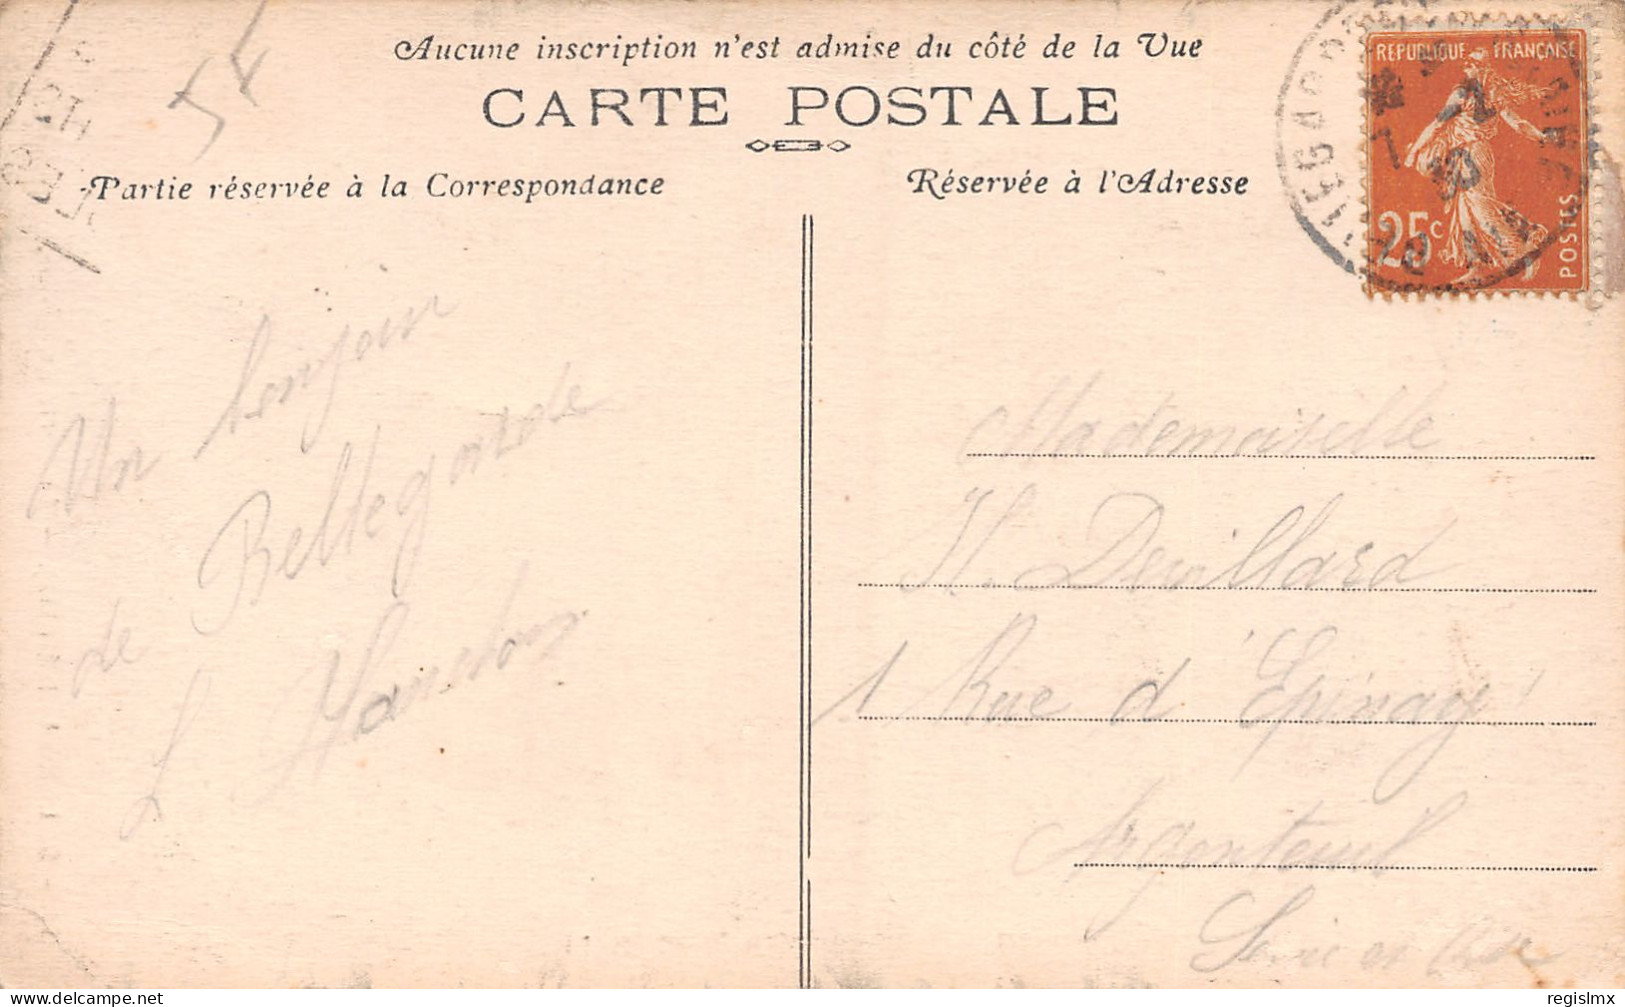 Aucune inscription n'est admise du côté de la Vue
CARTE POSTALE
Partie réservée à la Correspondance
Réservée à l'Adresse
54
REPUBLIQUE FRANÇAISE
25c
POSTES
Un bonjour
de Bellegarde
L
Mademoiselle
H. Devillard
1 Rue d'Epinay
Argenteuil
Seine et Oise
delcampe.net
regislmx